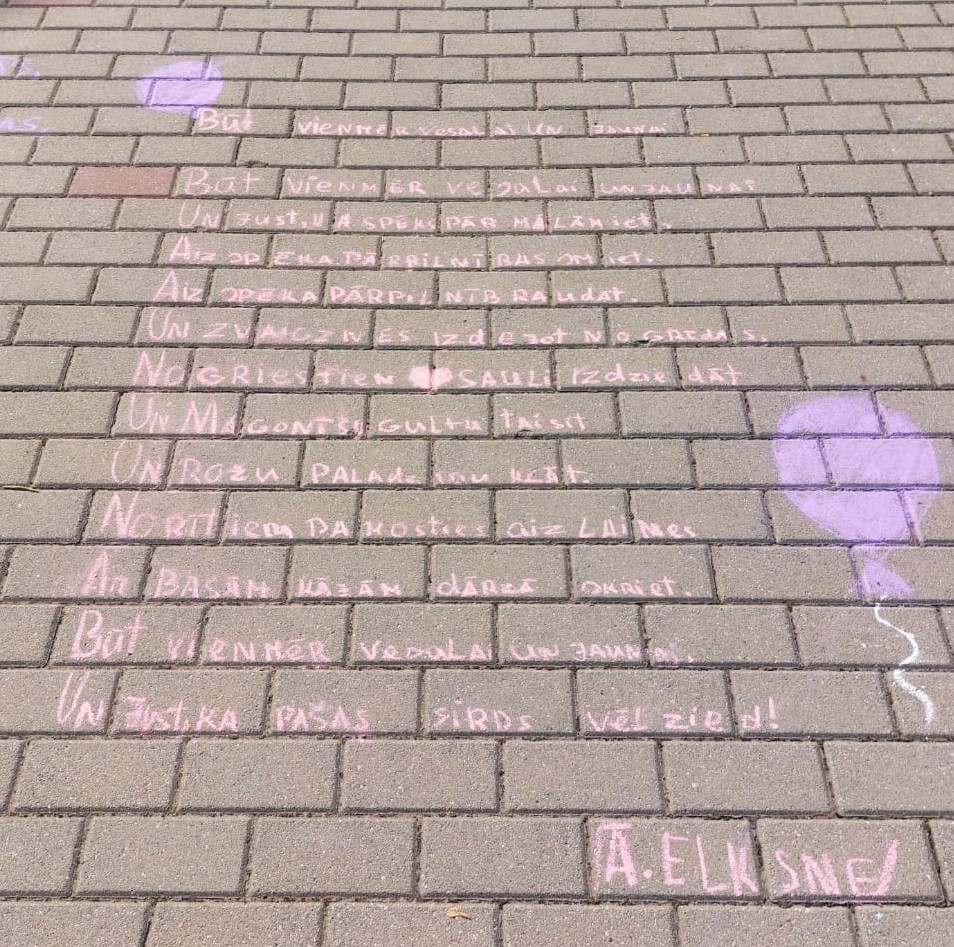 AS.
Būt vienmēr veselai un jaunai
Būt vienmēr veselai un jaunai
Un just, kā spēks pār malām iet.
Aiz spēka pārpilnības smiet.
Aiz spēka pārpilnības raudāt.
Un zvaigznēs izdejot no grīdas,
No griestiem ❤ sauli izdziedāt
Un magonīs gultu taisīt
Un rožu palagzinu klāt.
No rītiem pamosties aiz laimes
An basām kājām dārzā skriet.
Būt vienmēr veselai un jaunai.
Un just, ka pašas sirds vēl zied!
Ā. ELKSNE